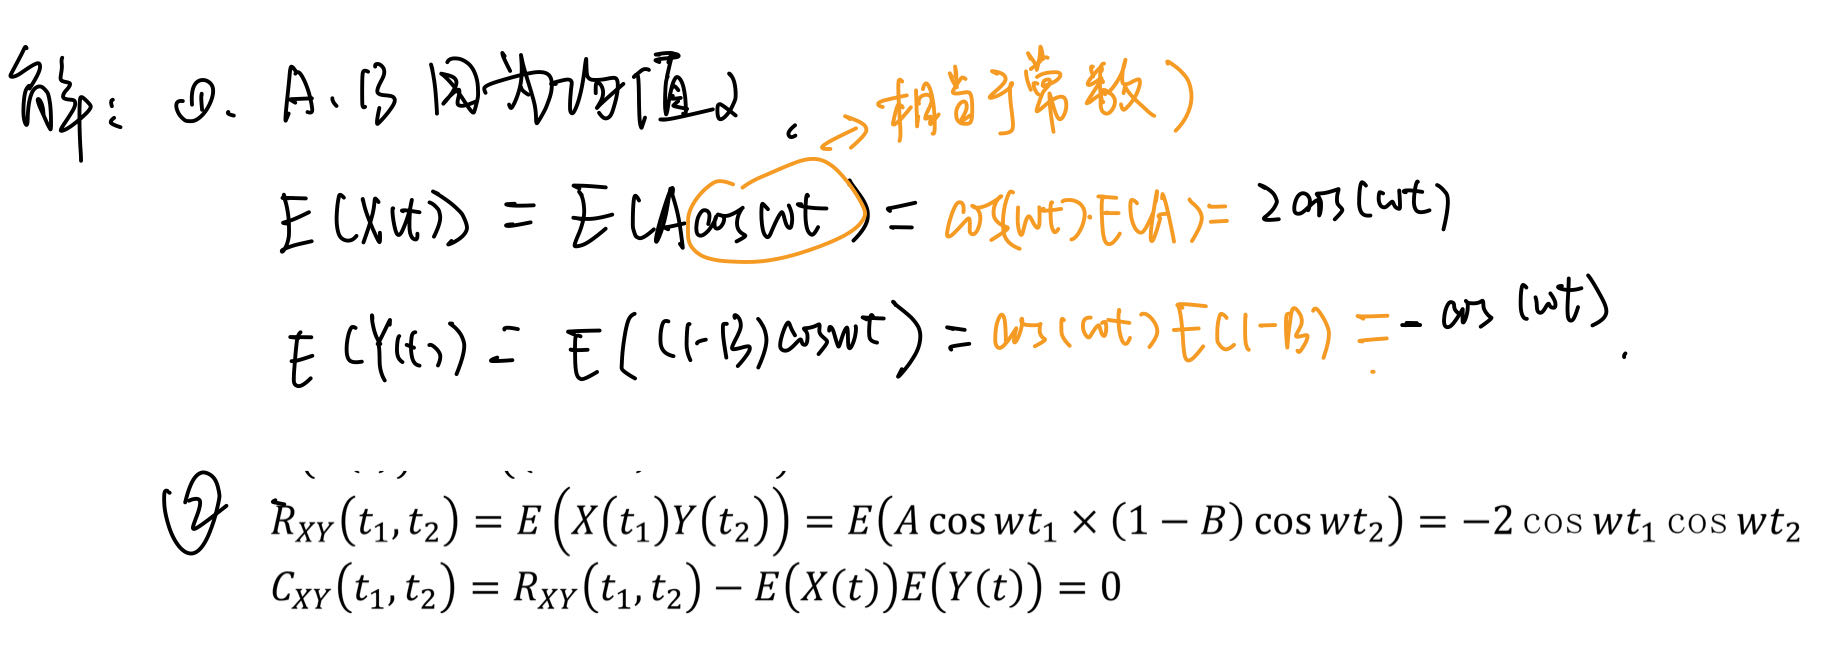 解：①. A、B 因为均值2.
→相当于常数)
E(X(t)) = E(A cos wt) = cos(wt)·E(A) = 2cos(wt)
E(Y(t)) = E((1-B)coswt) = cos(wt)E(1-B) = -cos(wt).
② R_XY(t₁, t₂) = E(X(t₁)Y(t₂)) = E(A cos wt₁ × (1 − B) cos wt₂) = −2 cos wt₁ cos wt₂
C_XY(t₁, t₂) = R_XY(t₁, t₂) − E(X(t))E(Y(t)) = 0